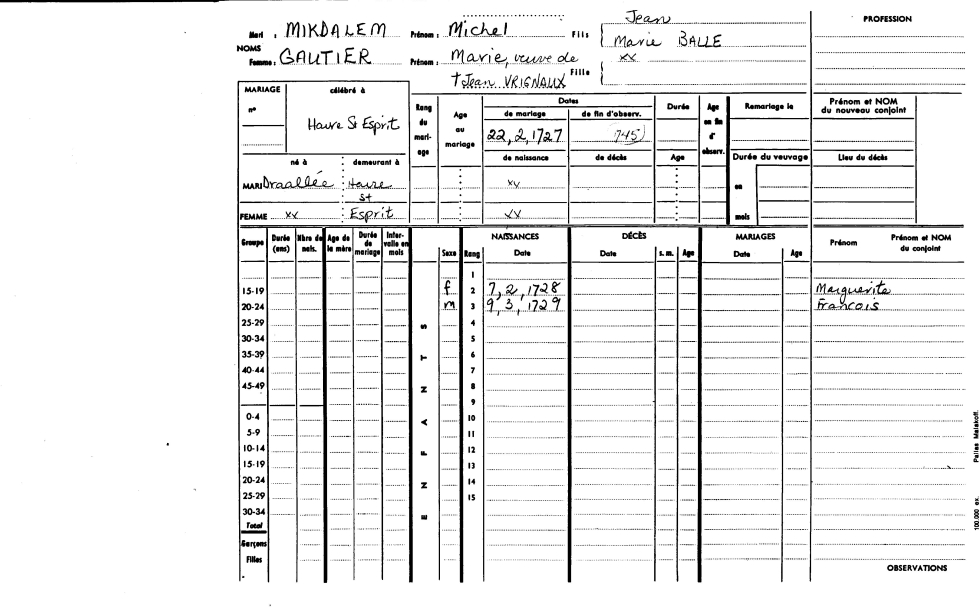 Jean
PROFESSION
Mari : MIKDALEM Prénom : Michel Fils Marie BALLE
NOMS
Femme : GAUTIER Prénom : Marie, veuve de Fille xx
† Jean VRIGNAUX
MARIAGE célébré à Rang du mari-age Age au mariage Dates Durée Age en fin d' observ. Remariage le Prénom et NOM du nouveau conjoint
n° de mariage de fin d'observ.
Havre St Esprit 22, 2, 1727 745)
né à demeurant à de naissance de décès Age Durée du veuvage Lieu du décès
MARI Draallée Havre xv en
St
FEMME xx Esprit xx mois
Groupe Durée (ans) Nbre de nais. Age de la mère Durée de mariage Inter-valle en mois NAISSANCES DÉCÈS MARIAGES Prénom Prénom et NOM du conjoint
Sexe Rang Date Date s. m. Age Date Age
1
15-19 f 2 7, 2, 1728 Marguerite
20-24 m 3 9, 3, 1729 Francois
25-29 S 4
30-34 5
35-39 T 6
40-44 7
45-49 N 8
9
0-4 A 10
5-9 11
10-14 F 12
15-19 13
20-24 N 14
25-29 15
30-34 E
Total
Garçons
Filles
OBSERVATIONS
100.000 ex. Pairies Malakoff.